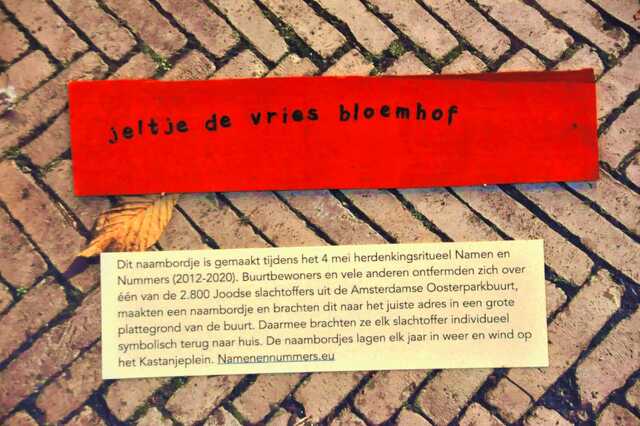 jeltje de vries bloemhof
Dit naambordje is gemaakt tijdens het 4 mei herdenkingsritueel Namen en
Nummers (2012-2020). Buurtbewoners en vele anderen ontfermden zich over
één van de 2.800 Joodse slachtoffers uit de Amsterdamse Oosterparkbuurt,
maakten een naambordje en brachten dit naar het juiste adres in een grote
plattegrond van de buurt. Daarmee brachten ze elk slachtoffer individueel
symbolisch terug naar huis. De naambordjes lagen elk jaar in weer en wind op
het Kastanjeplein. Namenennummers.eu